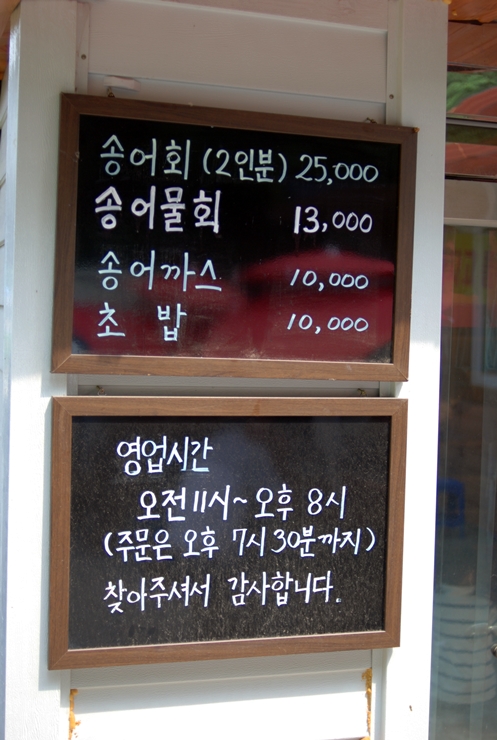 송어회 (2인분) 25,000
송어물회 13,000
송어까스 10,000
초 밥 10,000
영업시간
오전 11시~ 오후 8시
(주문은 오후 7시 30분까지)
찾아주셔서 감사합니다.